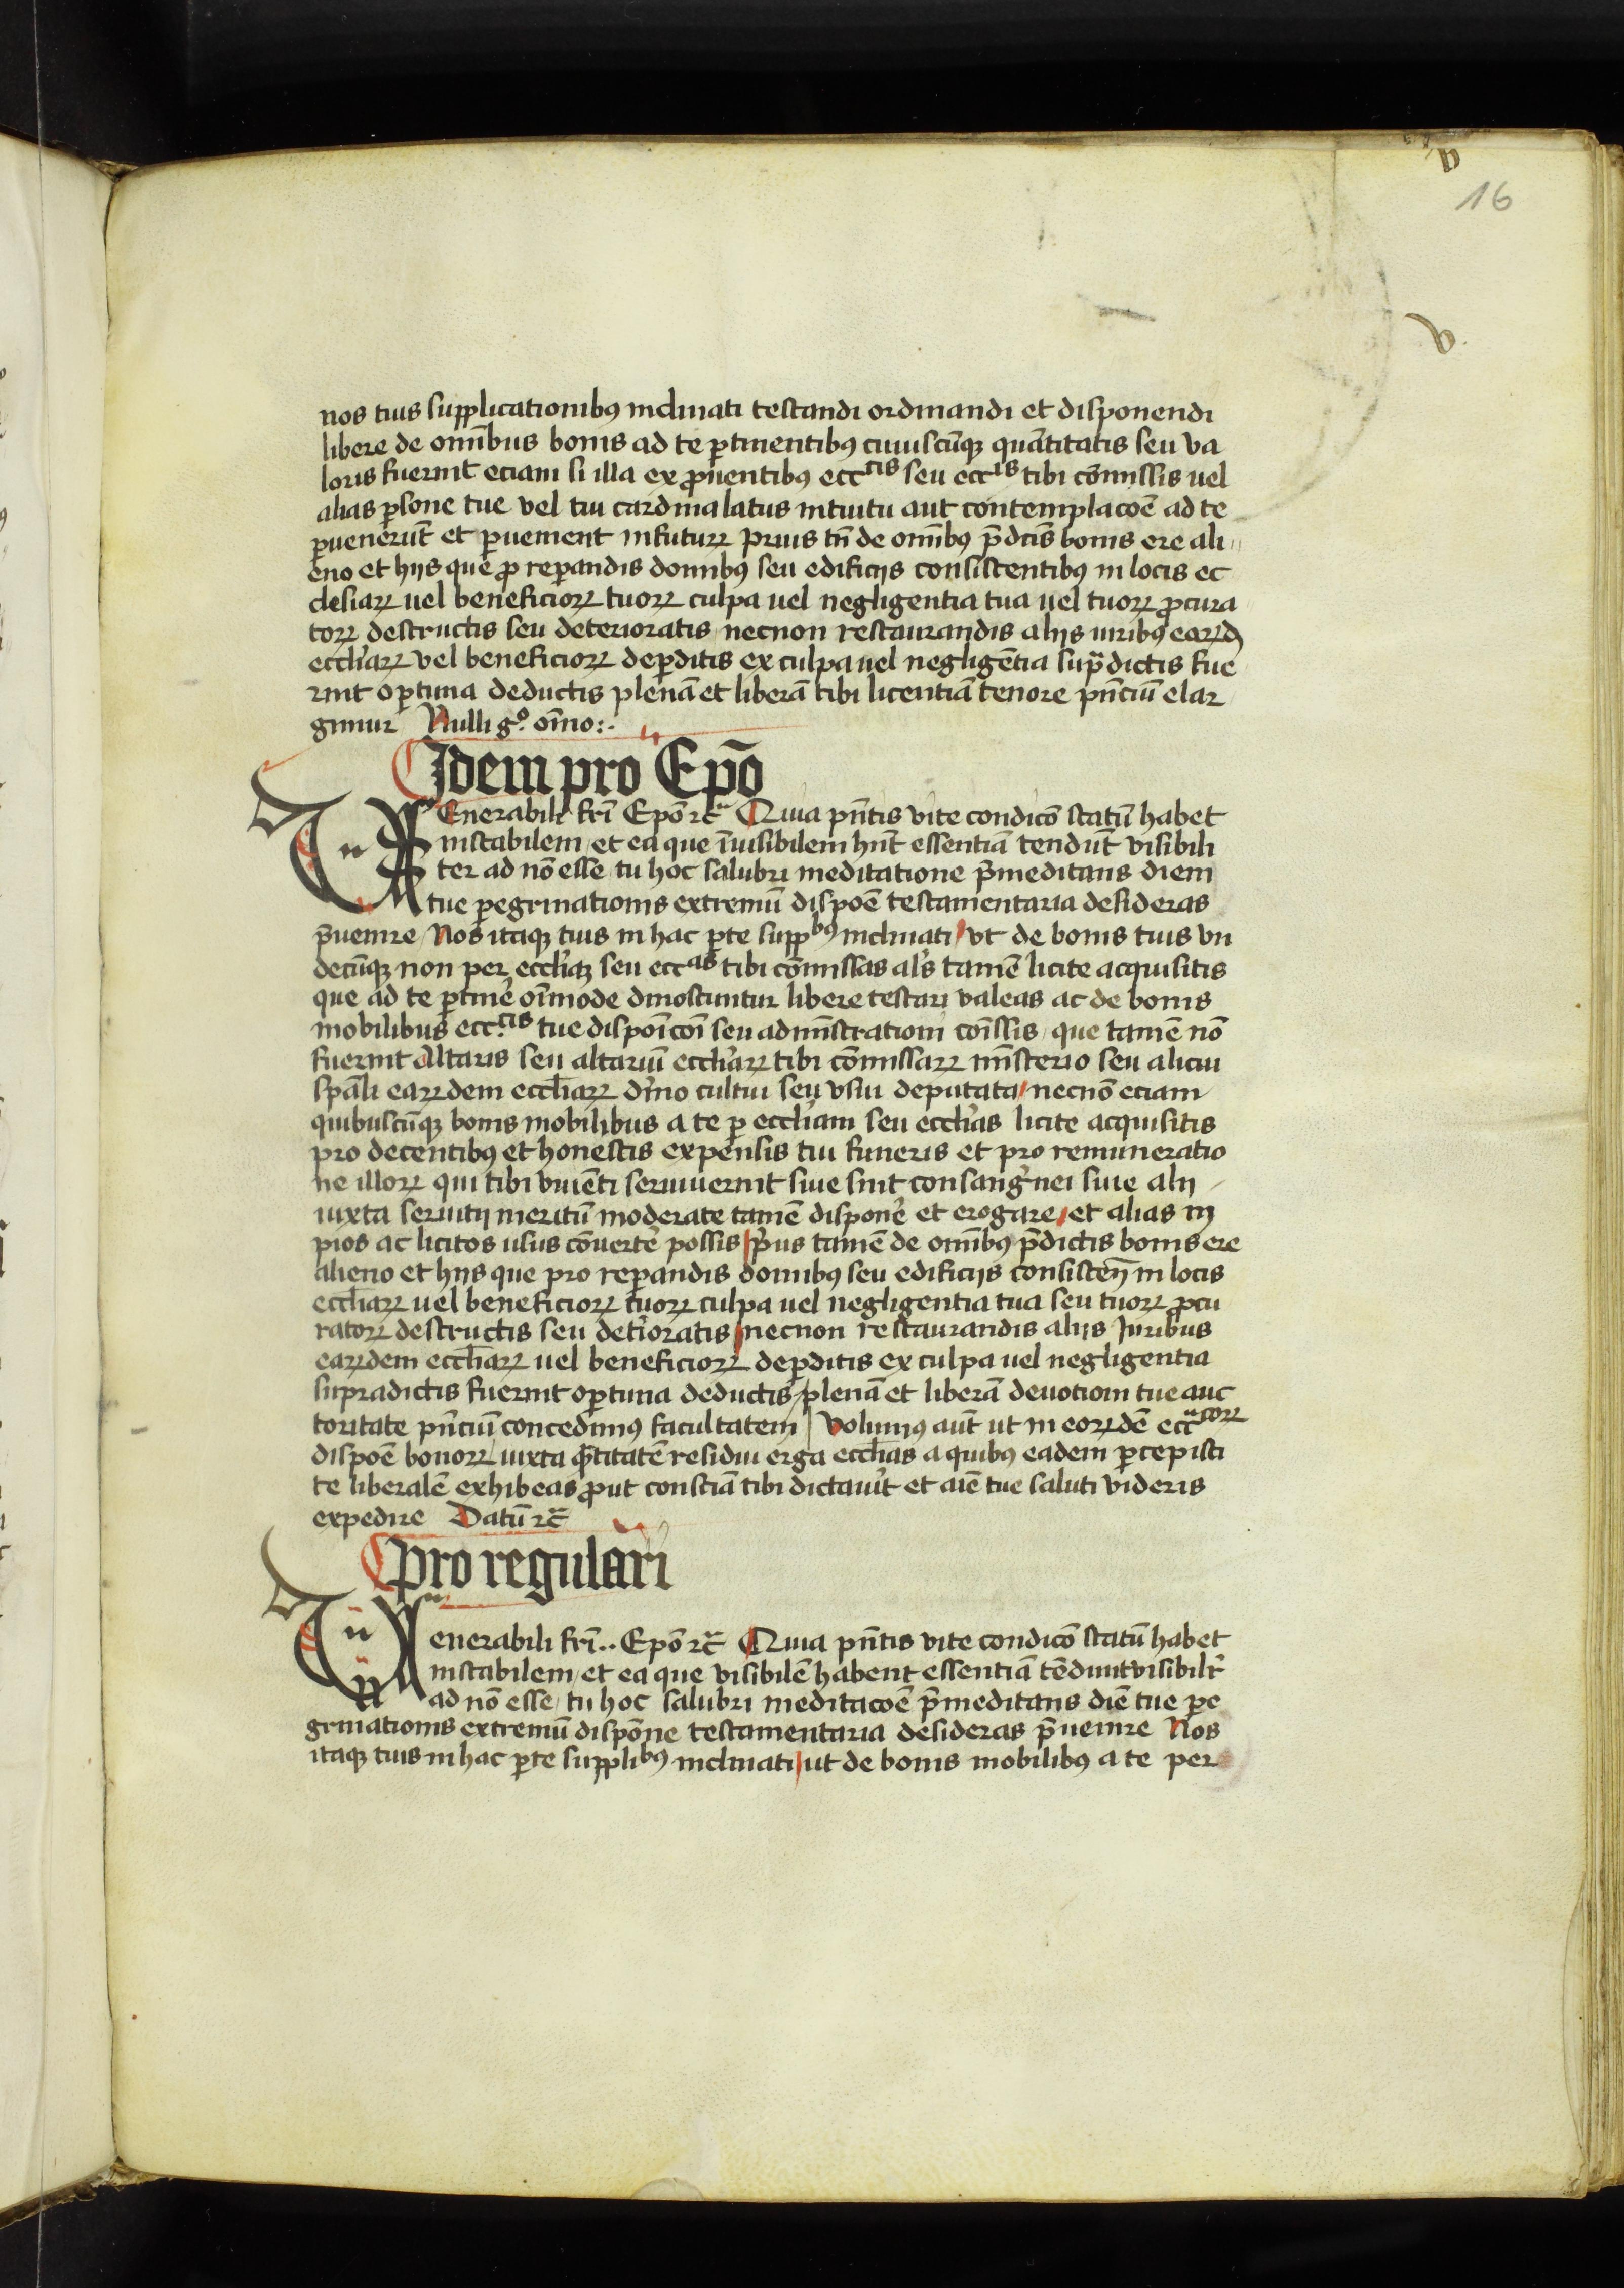 v
16
v.
nos tuis supplicationibꝰ inclinati testandi ordinandi et disponendi
libere de om̄ibus bonis ad te ꝑtinentibꝰ cuiuscūqꝫ quātitatis seu va
loris fuerint eciam si illa ex ꝓuentibꝰ eccᶜⁱˢ seu eccⁱˢ tibi cōmissis uel
alias ꝑsone tue vel tui cardinalatus intuitu aut contemplacōe ad te
ꝑuenerūt et ꝑuenient in futurꝝ prius tn̄ de om̄ibꝰ p̄dc̄is bonis ere ali
eno et hijs que ꝓ reꝑandis domibꝰ seu edificijs consistentibꝰ in locis ec
clesiarꝝ uel beneficiorꝝ tuorꝝ culpa uel negligentia tua uel tuorꝝ ꝓcura
torꝝ destructis seu deterioratis necnon restaurandis alijs iuribꝰ earꝝd̄
eccl̄iarꝝ vel beneficiorꝝ deꝑditis ex culpa uel negligētia sup̄dictis fue
rint oꝑtuna deductis plenā et liberā tibi licentiā tenore pn̄ciū elar
gimur Nulli gᵒ. om̄no :.
Idem pro Ep̄o
VEnerabili fr̄i Ep̄o ⁊c̄ Quia pn̄tis vite condicō statū habet
instabilem / et ea que īuisibilem hn̄t essentiā tendūt visibili
ter ad nō esse / tu hoc salubri meditatione p̄meditans diem
tue ꝑegrinationis extremū dispōe testamentaria desideras
p̄uenire / Nos itaqꝫ tuis in hac ꝑte suppᵇꝰ inclinati / vt de bonis tuis vn
decūqꝫ non per eccl̄iaꝫ seu eccᵃˢ tibi cōmissas al̄s tamē licite acquisitis
que ad te ꝑtinē om̄imode dinoscuntur libere testari valeas ac de bonis
mobilibus ecc.ᶜⁱˢ tue disponīcōi seu admīstrationi cōissis / que tamē nō
fuerint altaris seu altariū eccl̄iarꝝ tibi cōmissarꝝ mīsterio seu alicui
sp̄ali earꝝdem eccl̄iarꝝ diīno cultui seu vsui deputata / necnō eciam
quibuscūqꝫ bonis mobilibus a te ꝑ eccl̄iam seu eccl̄ias licite acquisitis
pro decentibꝰ et honestis expensis tui funeris et pro remuneratio
ne illorꝝ qui tibi viuēti seruiuerint siue sint consangᷝnei siue alij
iuxta seruitij meritū moderate tamē disponē et erogare / et alias in
pios ac licitos usus cōuertē possis / p̄us tamē de om̄ibꝰ p̄dictis bonis ere
alieno et hijs que pro reꝑandis domibꝰ seu edificijs consisteñ in locis
eccl̄iarꝝ uel beneficiorꝝ tuorꝝ culpa uel negligentia tua seu tuorꝝ ꝓcu
ratorꝝ destructis seu detīoratis / necnon restaurandis alijs Iuribus
earꝝdem eccl̄iarꝝ uel beneficiorꝝ deꝑditis ex culpa uel negligentia
supradictis fuerint oꝑtuna deductis / plenā et liberā deuotioni tue auc
toritate pn̄ciū concedimꝰ facultatem / Volumꝰ aūt ut in eorꝝdē eccᶜᵒʳꝝ
dispōe bonorꝝ / iuxta q̄titatē residui erga eccl̄ias a quibꝰ eadem ꝑcepisti
te liberalē exhibeas ꝓut consciā tibi dictauīt et aīe tue saluti videris
expedire Datū ⁊c̄
Pro regulari
Venerabili fr̄i .. Ep̄o ⁊c̄ Quia pn̄tis vite condicō statū habet
instabilem / et ea que visibilē habent essentiā tēdunt visibilr̄
ad nō esse / tu hoc salubri meditacōe p̄meditans diē tue pe
grinationis extremū dispōne testamentaria desideras p̄uenire Nos
itaqꝫ tuis in hac ꝑte suppliᵇꝰ inclinati / ut de bonis mobilibꝰ a te per